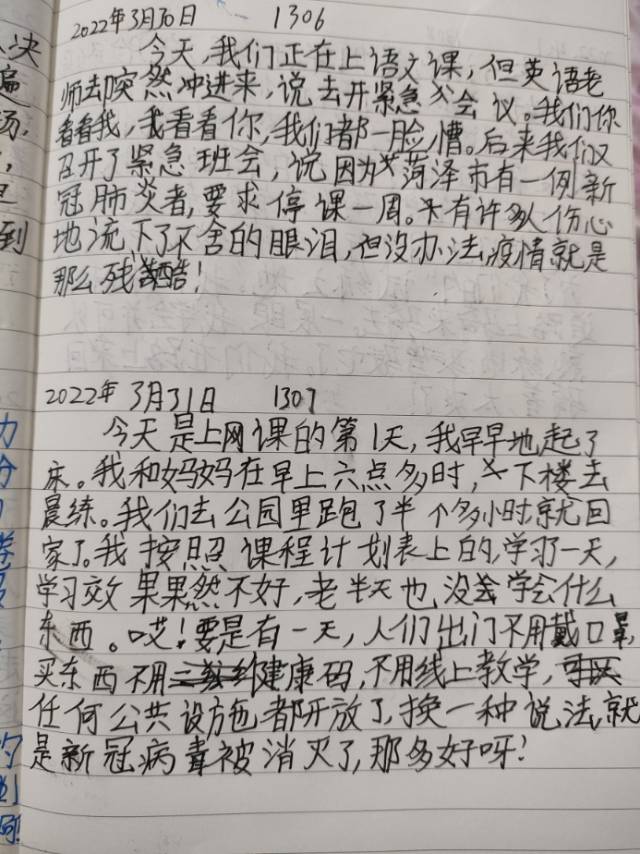 2022年3月30日 1306
今天,我们正在上语文课,但英语老
师却突然冲进来,说去开紧急会议。我们你
看看我,我看看你,我们都一脸懵。后来我们又
召开了紧急班会,说因为菏泽市有一例新
冠肺炎者,要求停课一周。有许多人伤心
地流下了不舍的眼泪,但没办法,疫情就是
那么残酷!
2022年3月31日 1307
今天是上网课的第1天,我早早地起了
床。我和妈妈在早上六点多时,下楼去
晨练。我们去公园里跑了半个多小时就回
家了。我按照课程计划表上的,学习了一天,
学习效果果然不好,老半天也没学会什么
东西。哎!要是有一天,人们出门不用戴口罩,
买东西不用健康码,不用线上教学,
任何公共设施都开放了,换一种说法,就
是新冠病毒被消灭了,那多好呀!
决
遍
场,
到
力
分
卷
的